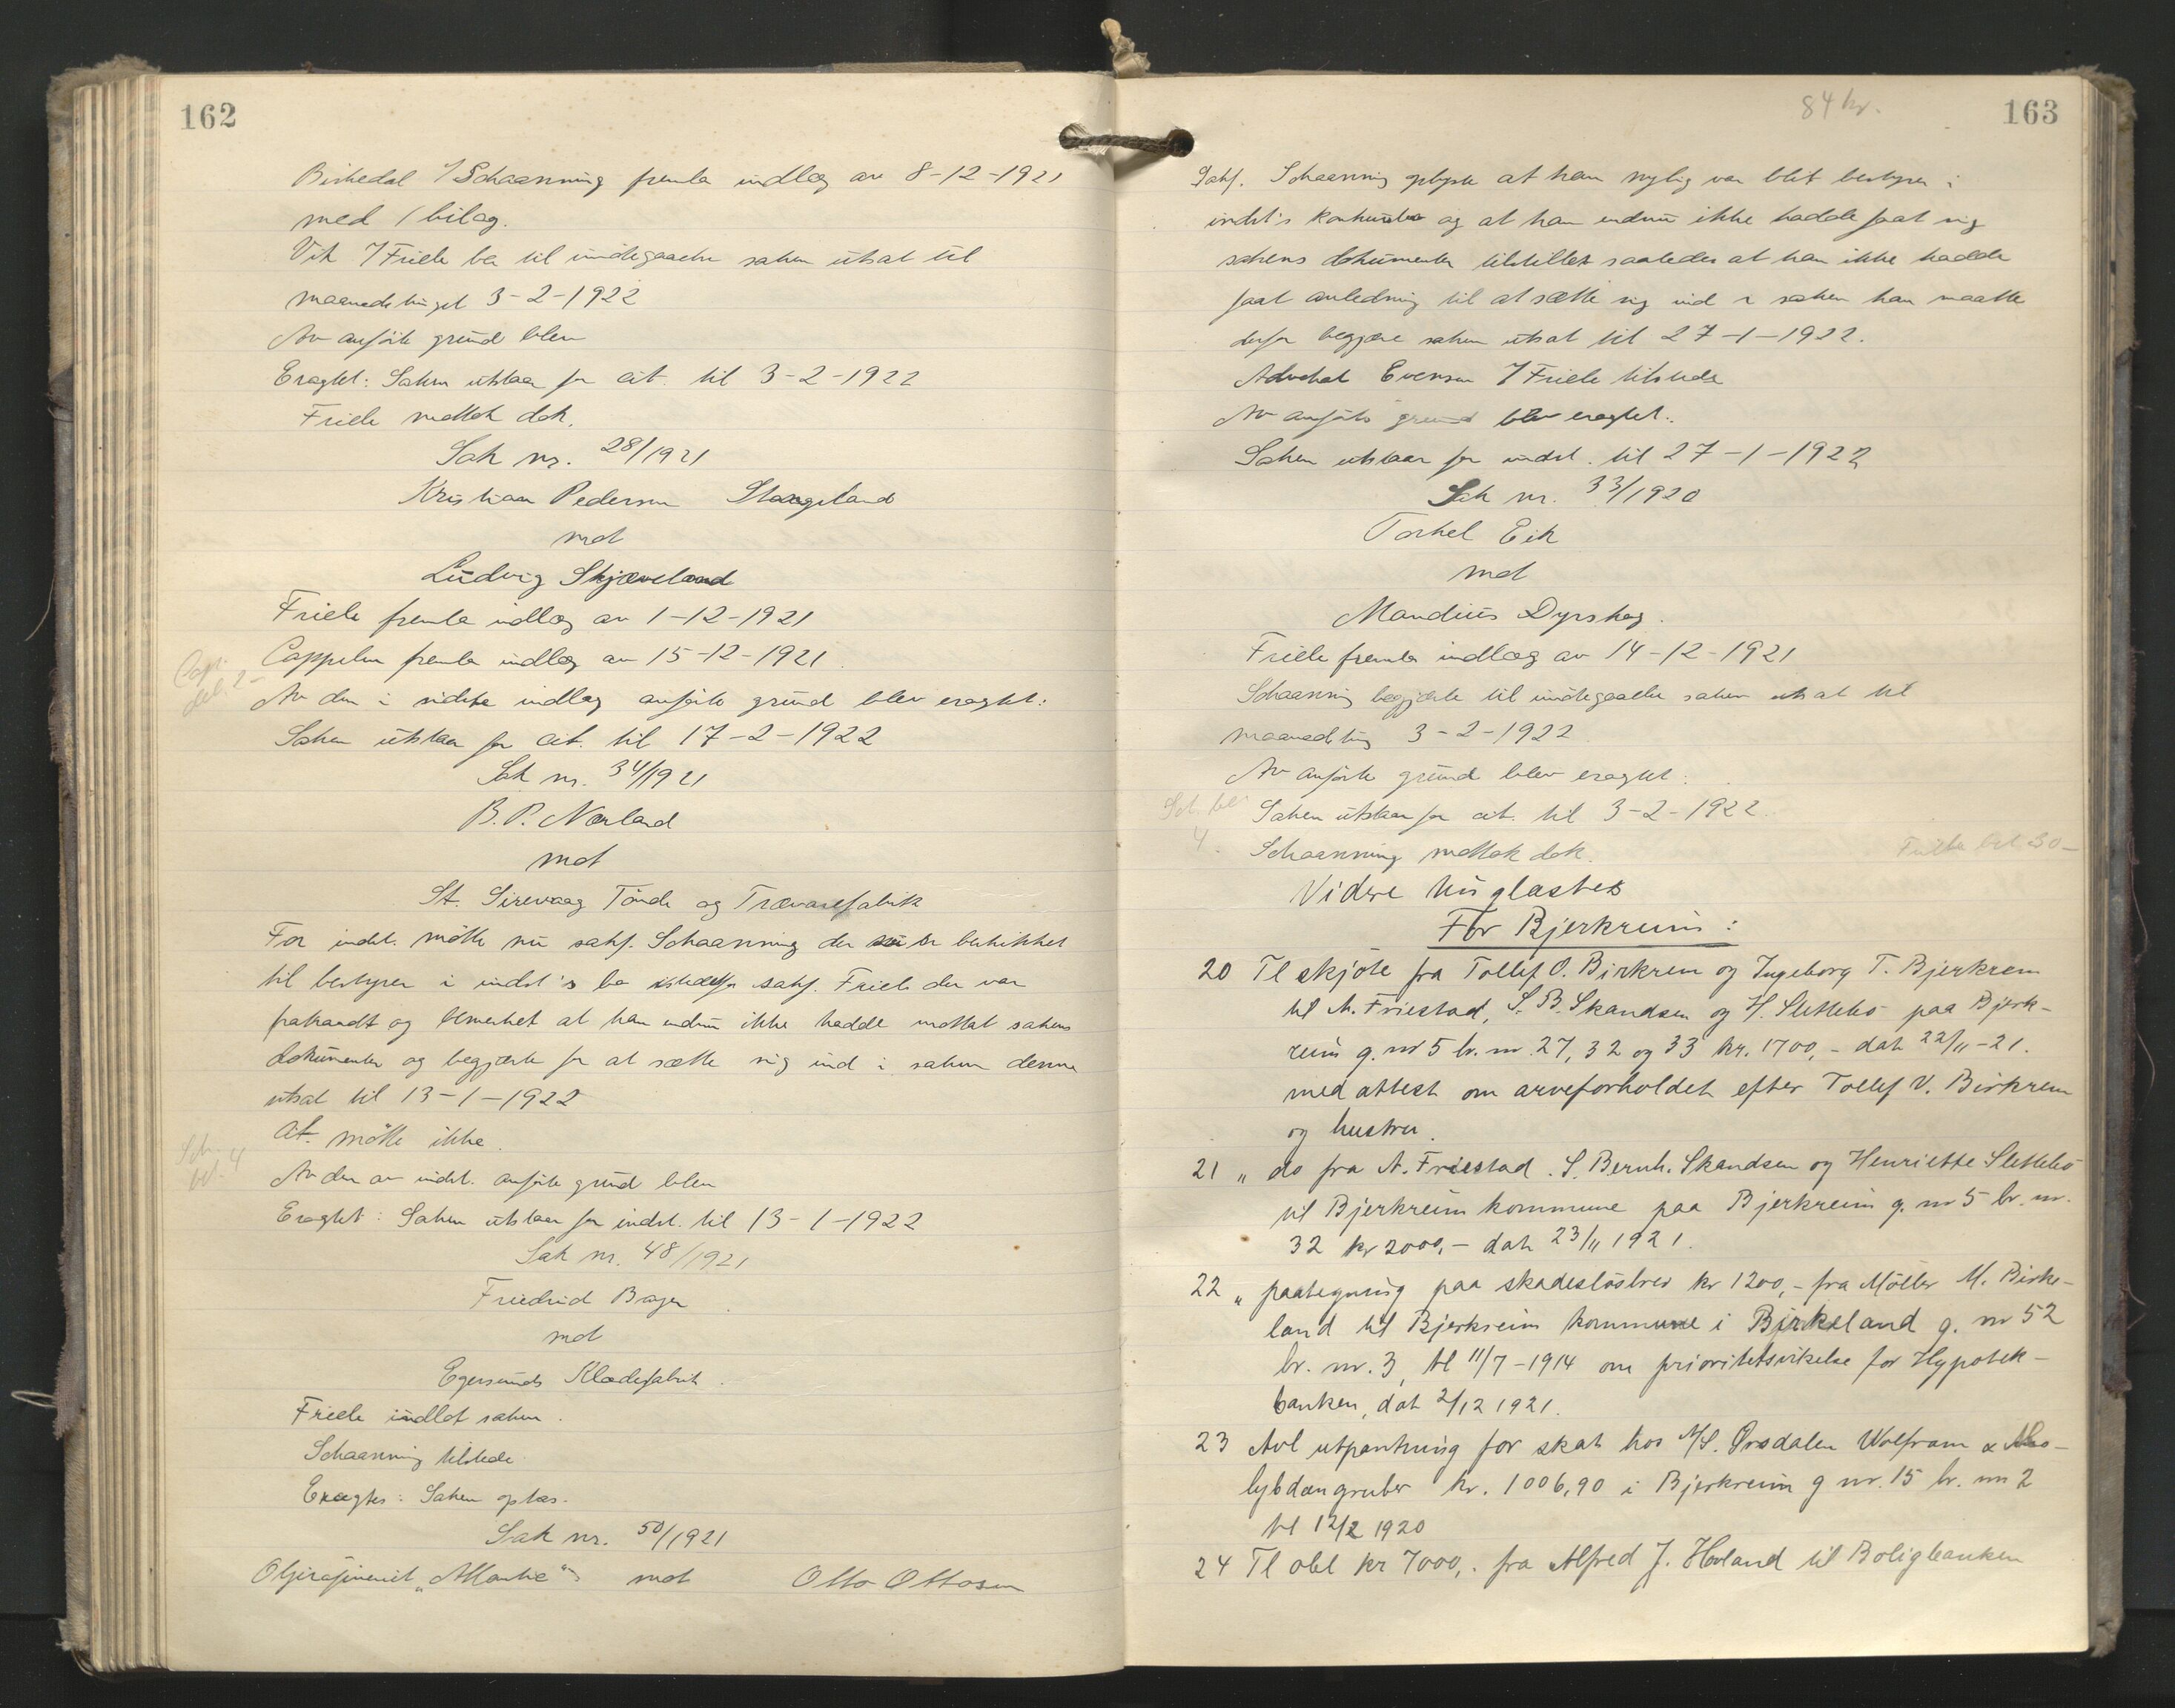 162
Birkedal / Schaanning fremla indlæg av 8-12-1921
med 1 bilag.
Vik / Friele ba til imøtegaaelse saken utsat til
maanedstinget 3-2-1922
Av anførte grund blev
Eragtet: Saken utstaar for cit. til 3-2-1922
Friele mottok dok.
Sak nr. 28/1921
Kristian Pedersen Stangeland
mot
Ludvig Skjæveland
Friele fremla indlæg av 1-12-1921
Cappelen fremla indlæg av 15-12-1921.
Av den i sidste indlæg anførte grund blev eragtet:
Saken utstaar for cit. til 17-2-1922
Sak nr. 34/1921
B. P. Nærland
mot
St. Sirevaag Tønde og Trævarefabrik
For indst. møtte nu sakf. Schaanning der er beskikket
til bestyrer i indst's bo istedetfor sakf. Friele der var
frakaldt og bemerket at han endnu ikke hadde mottat sakens
dokumenter og begjærte for at sætte sig ind i saken denne
utsat til 13-1-1922
Cit. møtte ikke.
Sch. bet. 4
Av den av indst. anførte grund blev
Eragtet: Saken utstaar for indst. til 13-1-1922
Sak nr. 48/1921
Friedrich Bayer
mot
Egersunds Klædefabrik.
Friele indlot saken.
Schaanning tilstede.
Eragtes: Saken optas.
Sak nr. 50/1921
Oljerafineriet „Atlantic" mot Otto Ottosen
84 kr.
163
Sakf. Schaanning oplyste at han nylig var blit bestyrer i
indst's konkursbo og at han endnu ikke hadde faat sig
sakens dokumenter tilstillet saaledes at han ikke hadde
faat anledning til at sætte sig ind i saken han maatte
derfor begjære saken utsat til 27-1-1922.
Advokat Evensen / Friele tilstede
Av anførte grund blev eragtet:
Saken utstaar for indst. til 27-1-1922
Sak nr. 33/1920
Torkel Eik
mot
Mandius Dyrskog.
Friele fremla indlæg av 14-12-1921
Schaanning begjærte til imøtegaaelse saken utsat til
maanedsting 3-2-1922.
Av anførte grund blev eragtet:
Sch. bet. 4.
Saken utstaar for cit. til 3-2-1922.
Schaanning mottok dok.
Friele bet 30-
Videre tinglæstes
For Bjerkreim:
20 Tl skjøte fra Tollef O. Birkrem og Ingeborg T. Bjerkrem
til A. Friestad, S. B. Skandsen og H. Slettebø paa Bjerk-
reim g. nr 5 br. nr. 27, 32 og 33 kr. 1700,- dat 22/11-21.
med attest om arveforholdet efter Tollef V. Birkrem
og hustru.
21 „ do fra A. Friestad. S. Bernh. Skandsen og Henriette Slettebø
til Bjerkreim kommune paa Bjerkreim g. nr 5 br. nr.
32 kr 2000,- dat 23/11 1921.
22 „ paategning paa skadesløsbrev kr 1200,- fra Møller M. Birke-
land til Bjerkreim kommune i Birkeland g. nr 52
br. nr. 3, tl 11/7-1914 om prioritetsvikelse for Hypotek-
banken, dat 2/12 1921.
23 Avl utpantning for skat hos A/S. Ørsdalen Wolfram & Mo-
lybdængruber kr. 1006,90 i Bjerkreim g nr. 15 br. nr 2
tl 12/2 1920
24 Tl obl kr 7000,- fra Alfred J. Hovland til Boligbanken